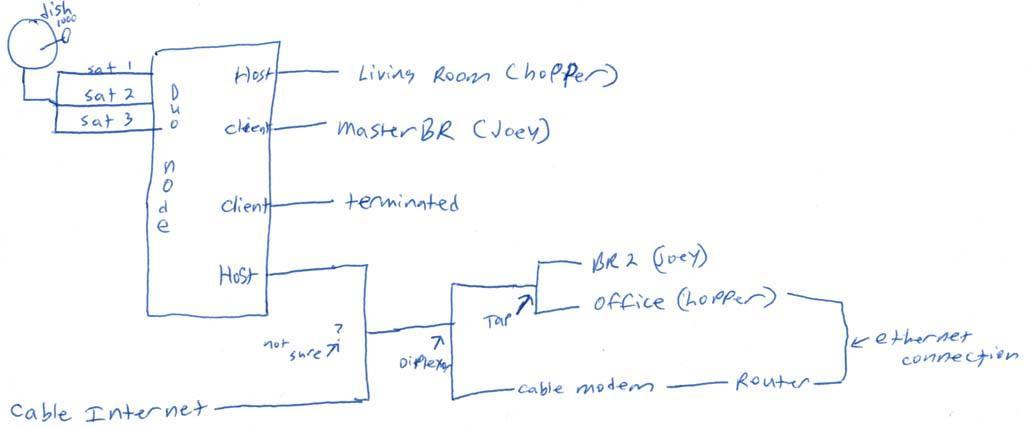 dish
1000
sat 1
sat 2
sat 3
Duo node
Host
Living Room (hopper)
client
master BR (Joey)
client
terminated
Host
BR 2 (Joey)
Tap
office (hopper)
?
not sure
Diplexer
ethernet
connection
cable modem
Router
Cable Internet